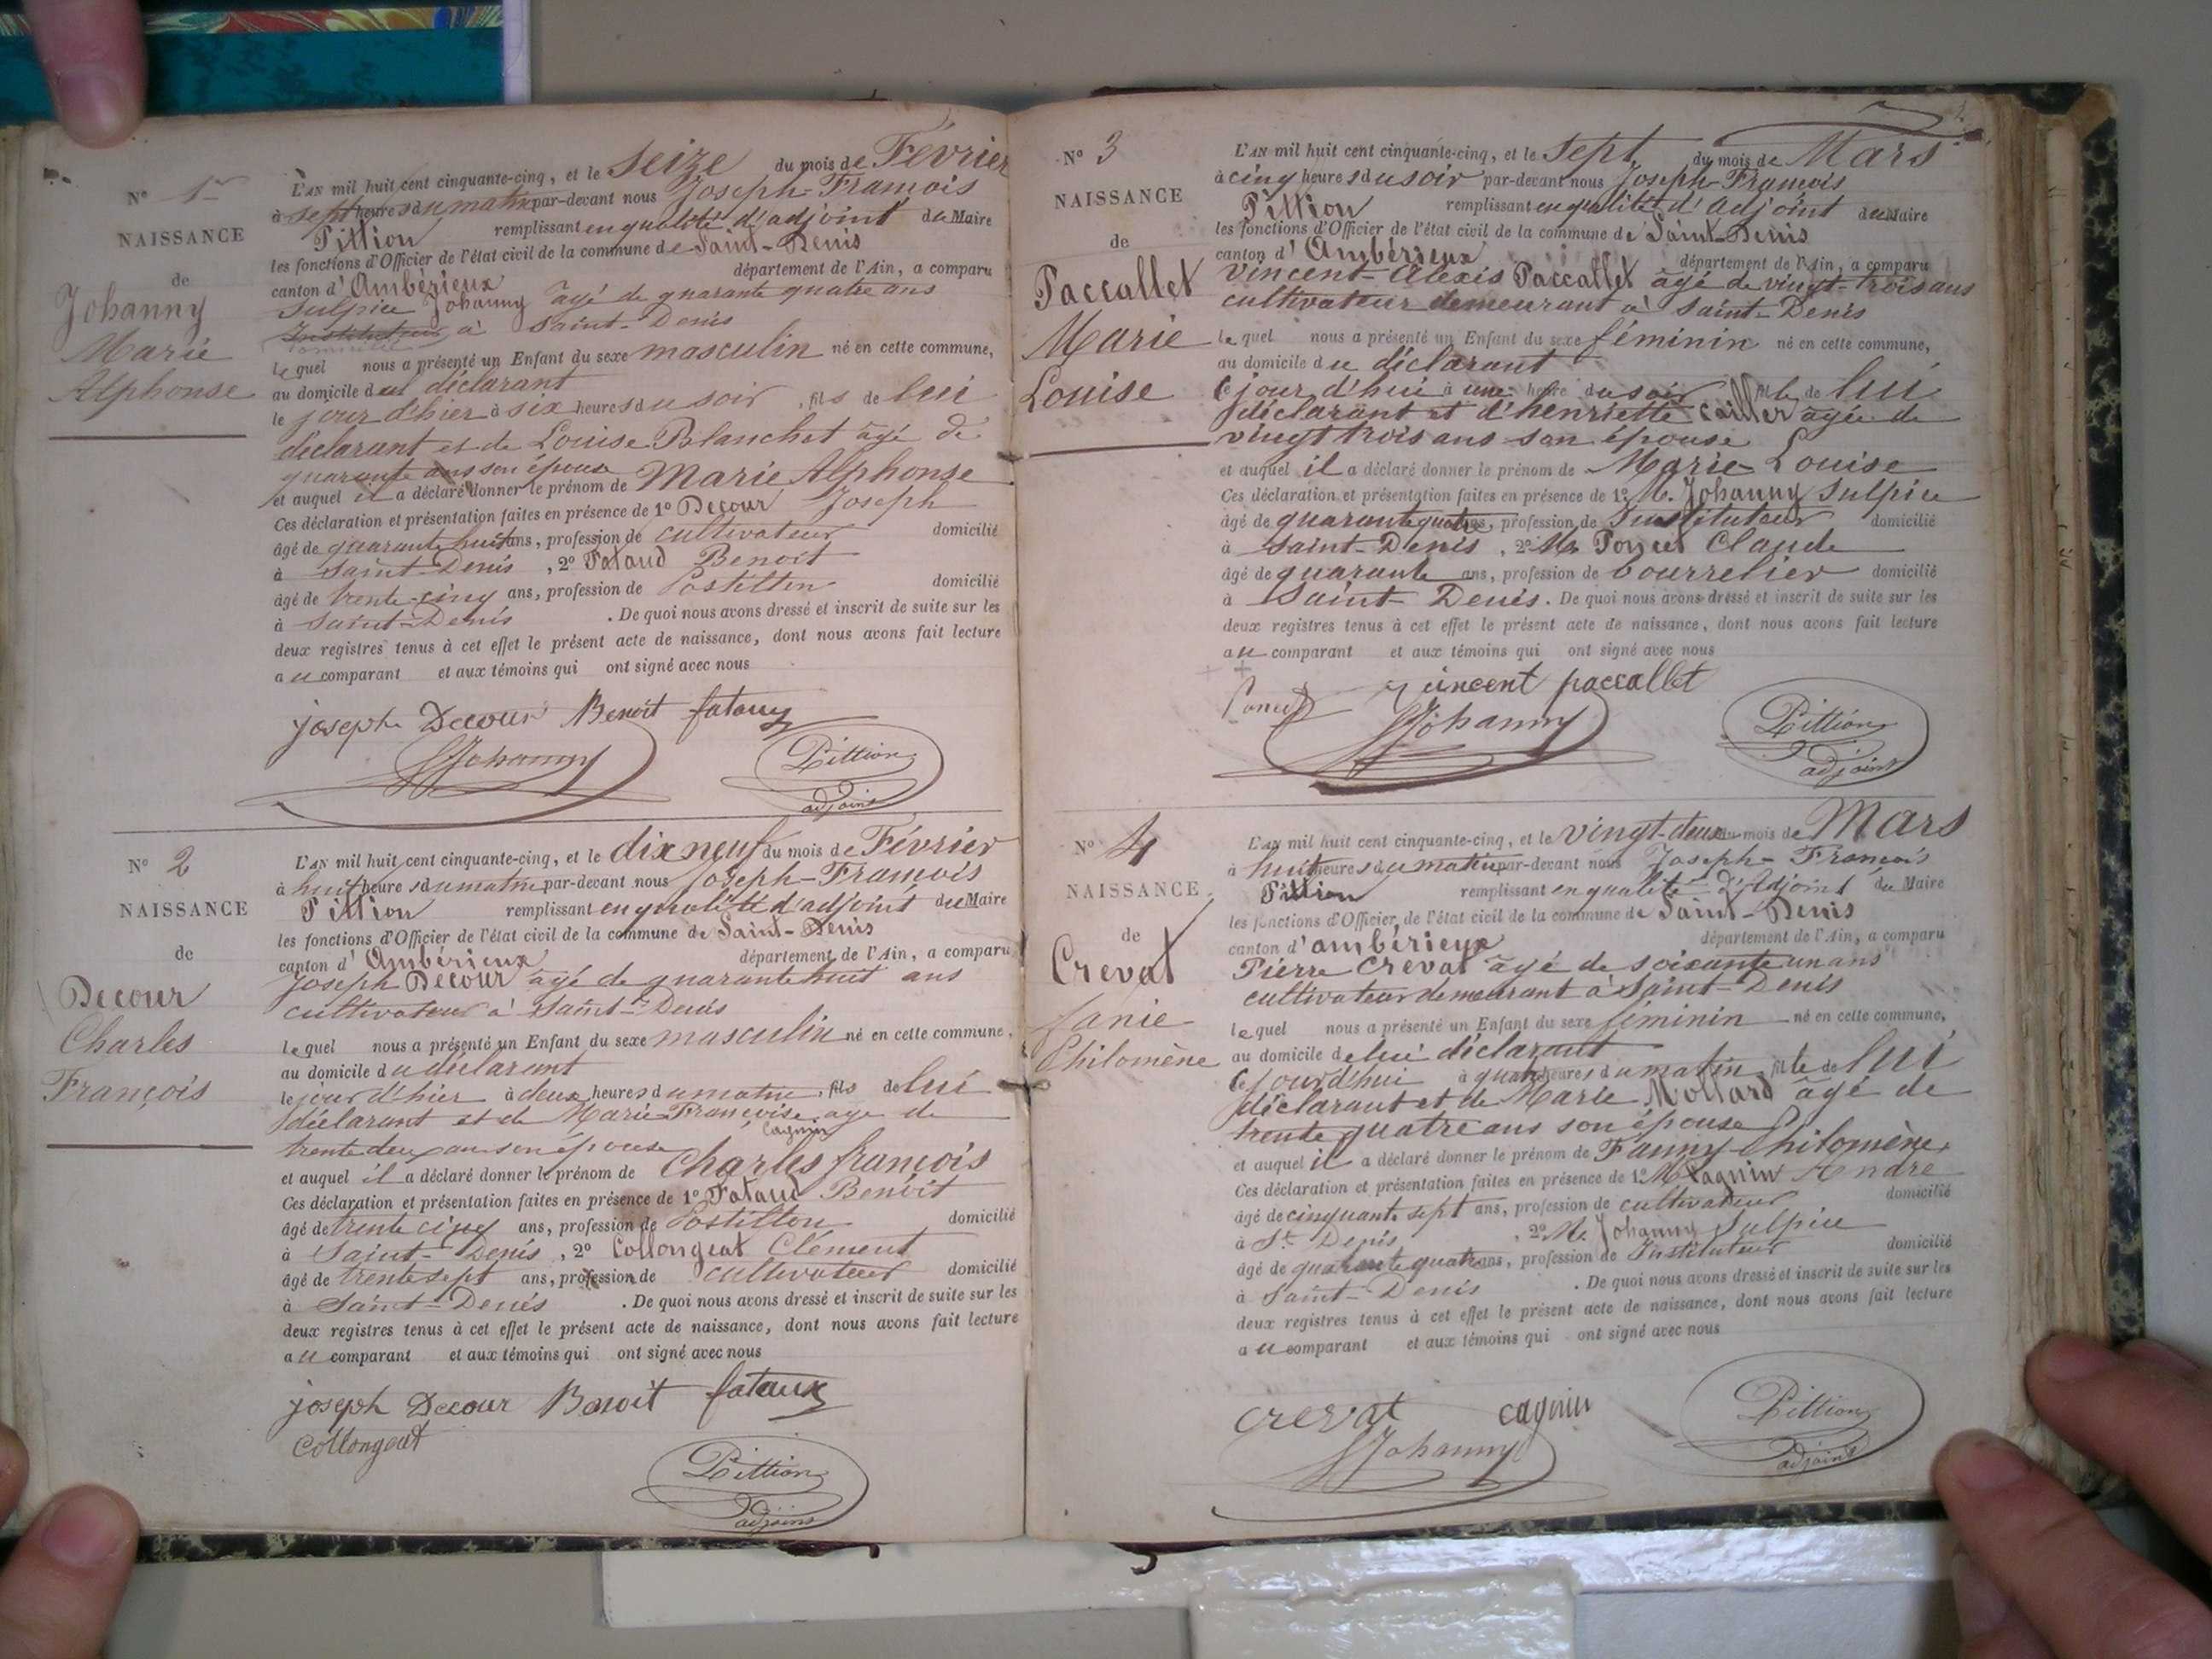 N° 1er
NAISSANCE
de
Johanny
Marie
Alphonse
L'AN mil huit cent cinquante-cinq, et le seize du mois de Février
à sept heures du matin par-devant nous Joseph-François
Pittion remplissant en qualité d'adjoint du Maire
les fonctions d'Officier de l'état civil de la commune de Saint-Denis
canton d'Ambérieux département de l'Ain, a comparu
Sulpice Johanny âgé de quarante quatre ans
Instituteur à Saint-Denis
lequel nous a présenté un Enfant du sexe masculin né en cette commune,
au domicile du déclarant
le jour d'hier à six heures du soir, fils de lui
déclarant et de Louise Blanchet âgé de
quarante ans son épouse
et auquel il a déclaré donner le prénom de Marie Alphonse
Ces déclaration et présentation faites en présence de 1° Decour Joseph
âgé de quarante huit ans, profession de cultivateur domicilié
à Saint-Denis, 2° Fataud Benoit
âgé de trente-cinq ans, profession de Postillon domicilié
à Saint-Denis. De quoi nous avons dressé et inscrit de suite sur les
deux registres tenus à cet effet le présent acte de naissance, dont nous avons fait lecture
au comparant et aux témoins qui ont signé avec nous
joseph Decour Benoit fataux
Johanny
Pittion
adjoint
N° 2
NAISSANCE
de
Decour
Charles
François
L'AN mil huit cent cinquante-cinq, et le dix neuf du mois de Février
à huit heures du matin par-devant nous Joseph-François
Pittion remplissant en qualité d'adjoint du Maire
les fonctions d'Officier de l'état civil de la commune de Saint-Denis
canton d'Ambérieux département de l'Ain, a comparu
Joseph Decour âgé de quarante huit ans
cultivateur à Saint-Denis
lequel nous a présenté un Enfant du sexe masculin né en cette commune,
au domicile du déclarant
le jour d'hier à deux heures du matin, fils de lui
déclarant et de Marie Françoise age de
Cagnin
trente deux ans son épouse
et auquel il a déclaré donner le prénom de Charles françois
Ces déclaration et présentation faites en présence de 1° Fataud Benoit
âgé de trente cinq ans, profession de Postillon domicilié
à Saint-Denis, 2° Collongeat Clément
âgé de trente sept ans, profession de cultivateur domicilié
à Saint-Denis. De quoi nous avons dressé et inscrit de suite sur les
deux registres tenus à cet effet le présent acte de naissance, dont nous avons fait lecture
au comparant et aux témoins qui ont signé avec nous
joseph Decour Benoit fataux
Collongeat
Pittion
adjoint
N° 3
NAISSANCE
de
Paccallet
Marie
Louise
L'AN mil huit cent cinquante-cinq, et le sept du mois de Mars
à cinq heures du soir par-devant nous Joseph-François
Pittion remplissant en qualité d'adjoint du Maire
les fonctions d'Officier de l'état civil de la commune de Saint-Denis
canton d'Ambérieux département de l'Ain, a comparu
Vincent-Alexis Paccallet âgé de vingt-trois ans
cultivateur demeurant à Saint-Denis
lequel nous a présenté un Enfant du sexe féminin né en cette commune,
au domicile du déclarant
ce jour d'hui à une heure du soir fille de lui
déclarant et d'henriette Cailler agée de
vingt trois ans son épouse
et auquel il a déclaré donner le prénom de Marie-Louise
Ces déclaration et présentation faites en présence de 1° M. Johanny Sulpice
âgé de quarante quatre ans, profession de Instituteur domicilié
à Saint-Denis, 2° M. Poncet Claude
âgé de quarante ans, profession de bourrelier domicilié
à Saint-Denis. De quoi nous avons dressé et inscrit de suite sur les
deux registres tenus à cet effet le présent acte de naissance, dont nous avons fait lecture
au comparant et aux témoins qui ont signé avec nous
Poncet vincent paccallet
Johanny
Pittion
adjoint
N° 4
NAISSANCE
de
Crevat
fanie
Philomène
L'AN mil huit cent cinquante-cinq, et le vingt-deux du mois de Mars
à huit heures du matin par-devant nous Joseph-François
Pittion remplissant en qualité d'Adjoint du Maire
les fonctions d'Officier de l'état civil de la commune de Saint-Denis
canton d'ambérieux département de l'Ain, a comparu
Pierre Crevat âgé de soixante un ans
cultivateur demeurant à Saint-Denis
lequel nous a présenté un Enfant du sexe féminin né en cette commune,
au domicile de lui déclarant
ce jourd'hui à quatre heures du matin fille de lui
déclarant et de Marie Mollard âgé de
trente quatre ans son épouse
et auquel il a déclaré donner le prénom de Fanny-Philomène
Ces déclaration et présentation faites en présence de 1° M. Cagnin André
âgé de cinquante sept ans, profession de cultivateur domicilié
à St Denis, 2° M. Johanny Sulpice
âgé de quarante quatre ans, profession de Instituteur domicilié
à Saint-Denis. De quoi nous avons dressé et inscrit de suite sur les
deux registres tenus à cet effet le présent acte de naissance, dont nous avons fait lecture
au comparant et aux témoins qui ont signé avec nous
crevat cagnin
Johanny
Pittion
adjoint